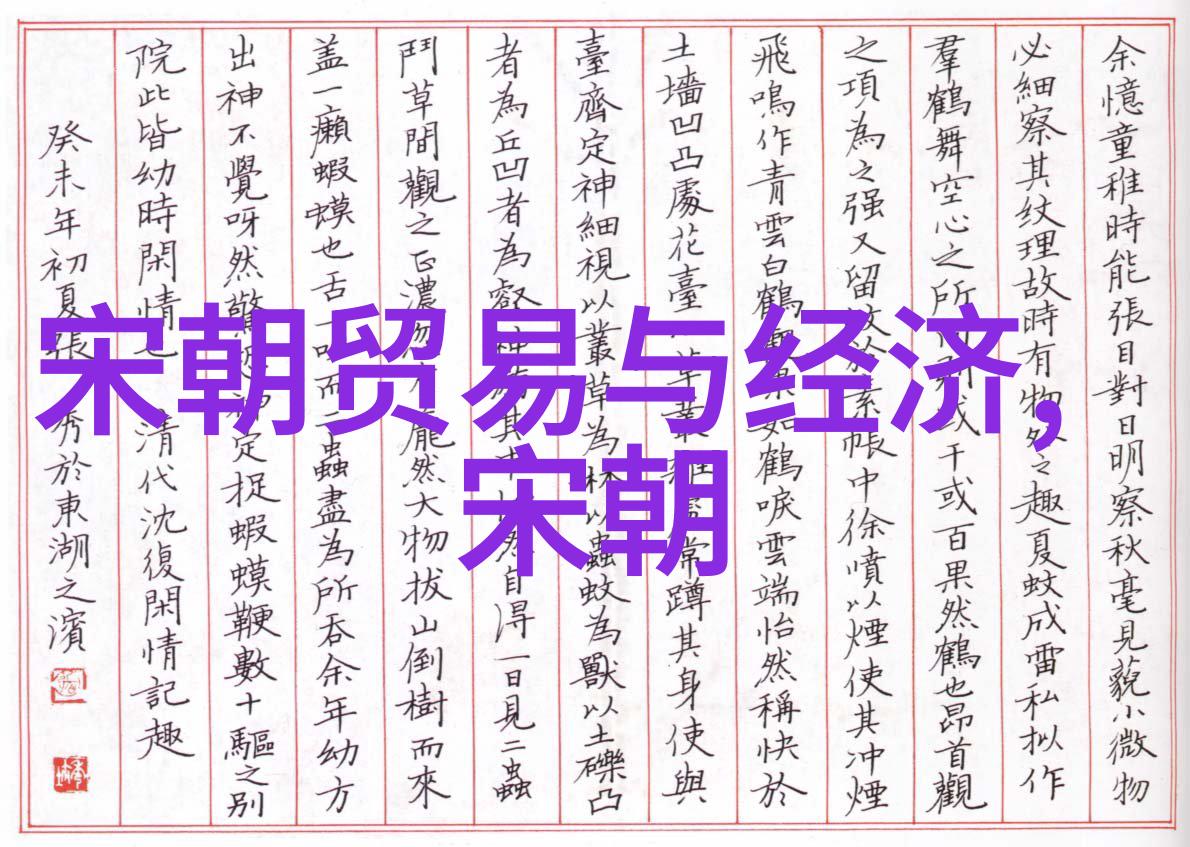 宋朝贸易与经济,
宋朝
余憶童稚時能張目對日明察秋毫見藐小微物
必細察其纹理故時有物外之趣夏蚊成雷私拟作
羣鶴舞空心之所向或千或百果然鶴也昂首觀
之項為之强又留蚊於素帳中徐噴以煙使其冲煙
飛鳴作青雲白鶴觀果如鶴唳雲端怡然稱快於
土墻凹凸處花臺小草叢雜處常蹲其身使與
臺齊定神細視以叢草為林以蟲蚊為獸以土礫凸
者為丘凹者為壑神游其中怡然自得一日見二蟲
鬥草間觀之正濃忽有龐然大物拔山倒樹而來
盖一癩蝦蟆也舌一吐而二蟲盡為所吞余年幼方
出神不覺呀然驚恐神定捉蝦蟆鞭數十驅之别
院此皆幼時閑情也 清代沈復閑情記趣
癸未年初夏張秀於東湖之濱